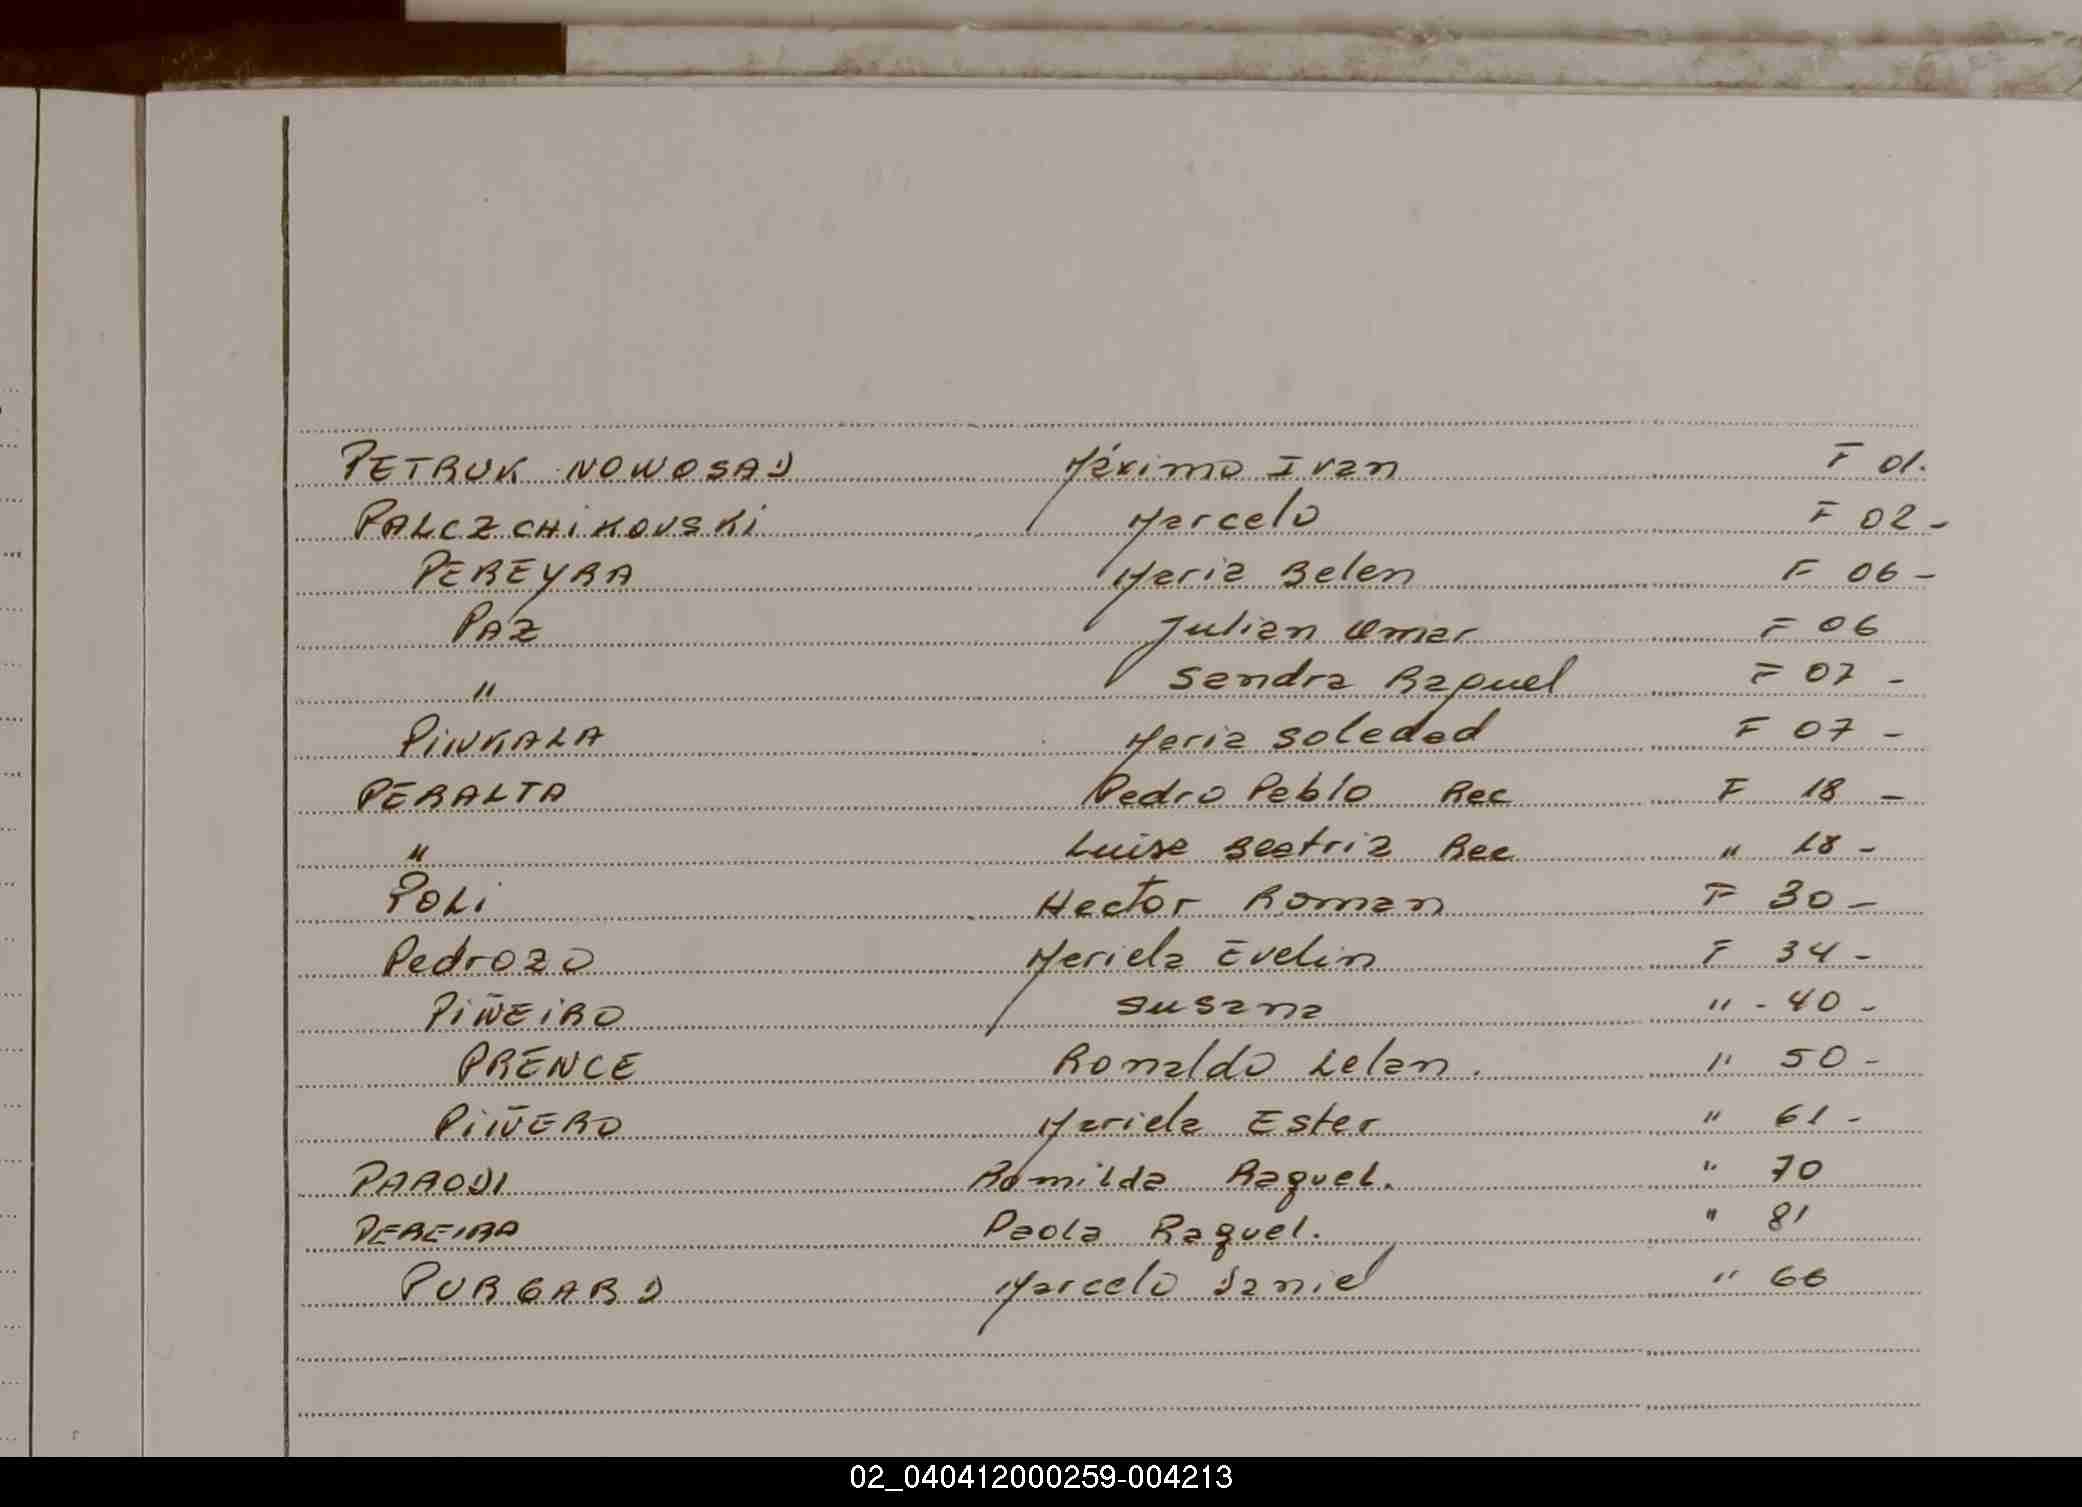 PETRUK NOWOSAD Máximo Ivan F 01.
PALCZCHIKOVSKI Marcelo F 02-
PEREYRA Maria Belen F 06-
PAZ Julian Omar F 06
" Sandra Raquel F 07 -
PINKALA Maria Soledad F 07 -
PERALTA Pedro Pablo Rec F 18 -
" Luisa Beatriz Rec " 18 -
POLI Hector Roman F 30 -
Pedrozo Mariela Evelin F 34 -
PIÑEIRO Susana " - 40 -
PRENCE Ronaldo Lelan. " 50 -
PIÑERO Mariela Ester " 61 -
PARODI Romilda Raquel. " 70
PEREIRA Paola Raquel. " 81
PURGARD Marcelo Daniel " 66
02_040412000259-004213